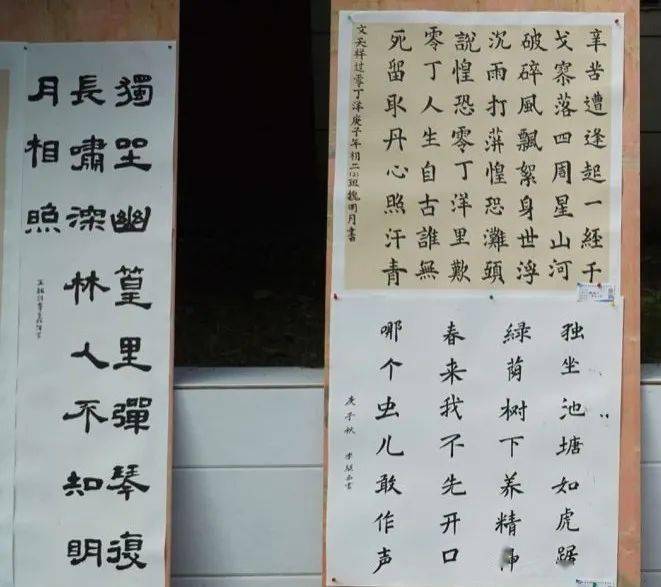 辛苦遭逢起一經千
戈寮落四周星山河
破碎風飄絮身世浮
沉雨打萍惶恐灘頭
説惶恐零丁洋里歎
零丁人生自古誰無
死留取丹心照汗青
文天祥过零丁洋庚子年初二(2)班魏明月書
独坐池塘如虎踞
緑荫树下养精神
春来我不先开口
哪个虫儿敢作声
庚子秋 李 書
獨坐幽篁里彈琴復
長嘯深林人不知明
月相照
王維詩